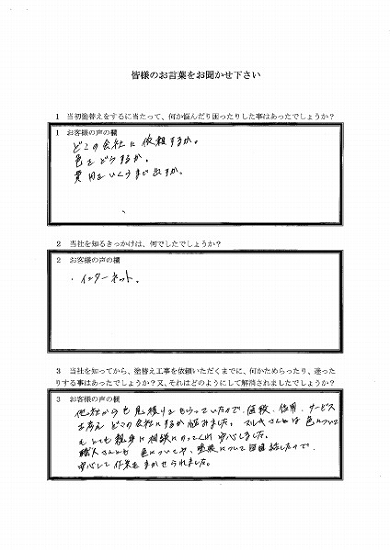 皆様のお言葉をお聞かせ下さい
1 当初塗替えをするに当たって、何か悩んだり困ったりした事はあったでしょうか?
1 お客様の声の欄
どこの会社に依頼するか。
色をどうするか。
費用をいくらまで出すか。
2 当社を知るきっかけは、何でしたでしょうか?
2 お客様の声の欄
・インターネット。
3 当社を知ってから、塗替え工事を依頼いただくまでに、何かためらったり、迷ったりする事はあったでしょうか?又、それはどのようにして解消されましたでしょうか?
3 お客様の声の欄
他社からも見積りをもらっていたので、価格、信用、サービス
を考え どこの会社にするか悩みました。 さんは 色について
も とても親身に相談にのってくれ 安心しました。
職人さんとも 色についてや、塗装について 話したので、
安心して作業をまかせられました。